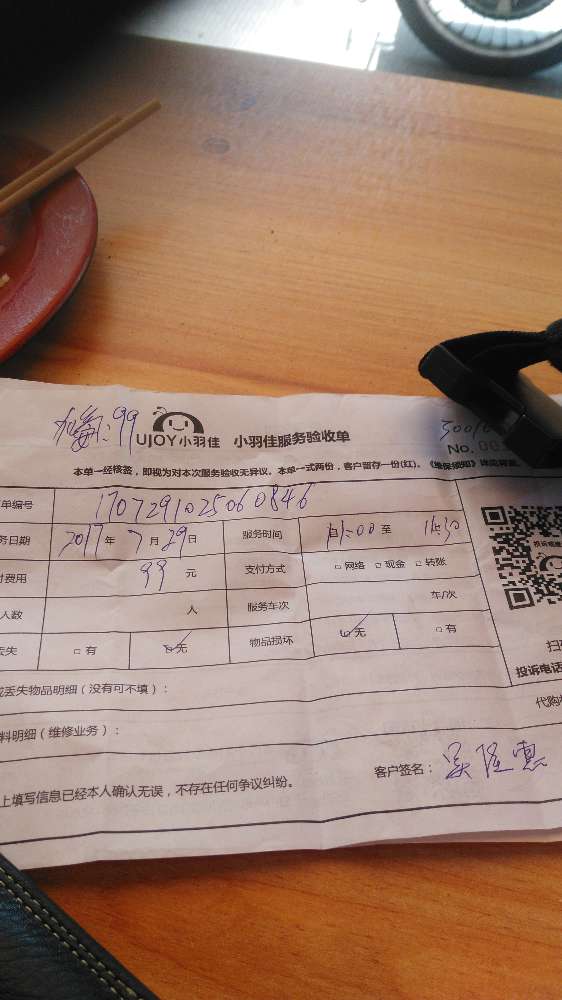 99
UJOY小羽佳 小羽佳服务验收单
No.
本单一经核签，即视为对本次服务验收无异议。本单一式两份，客户留存一份(红)。《维保须知》
单编号 1707291025060846
务日期 2017年7月29日 服务时间 自11:00至
费用 99元 支付方式 □网络 □现金 □转账
人数 人 服务车次 车/次
丢失 □有 □无 物品损坏 □无 □有
扫
投诉电话
或丢失物品明细（没有可不填）：
代购
料明细（维修业务）：
上填写信息已经本人确认无误，不存在任何争议纠纷。 客户签名：